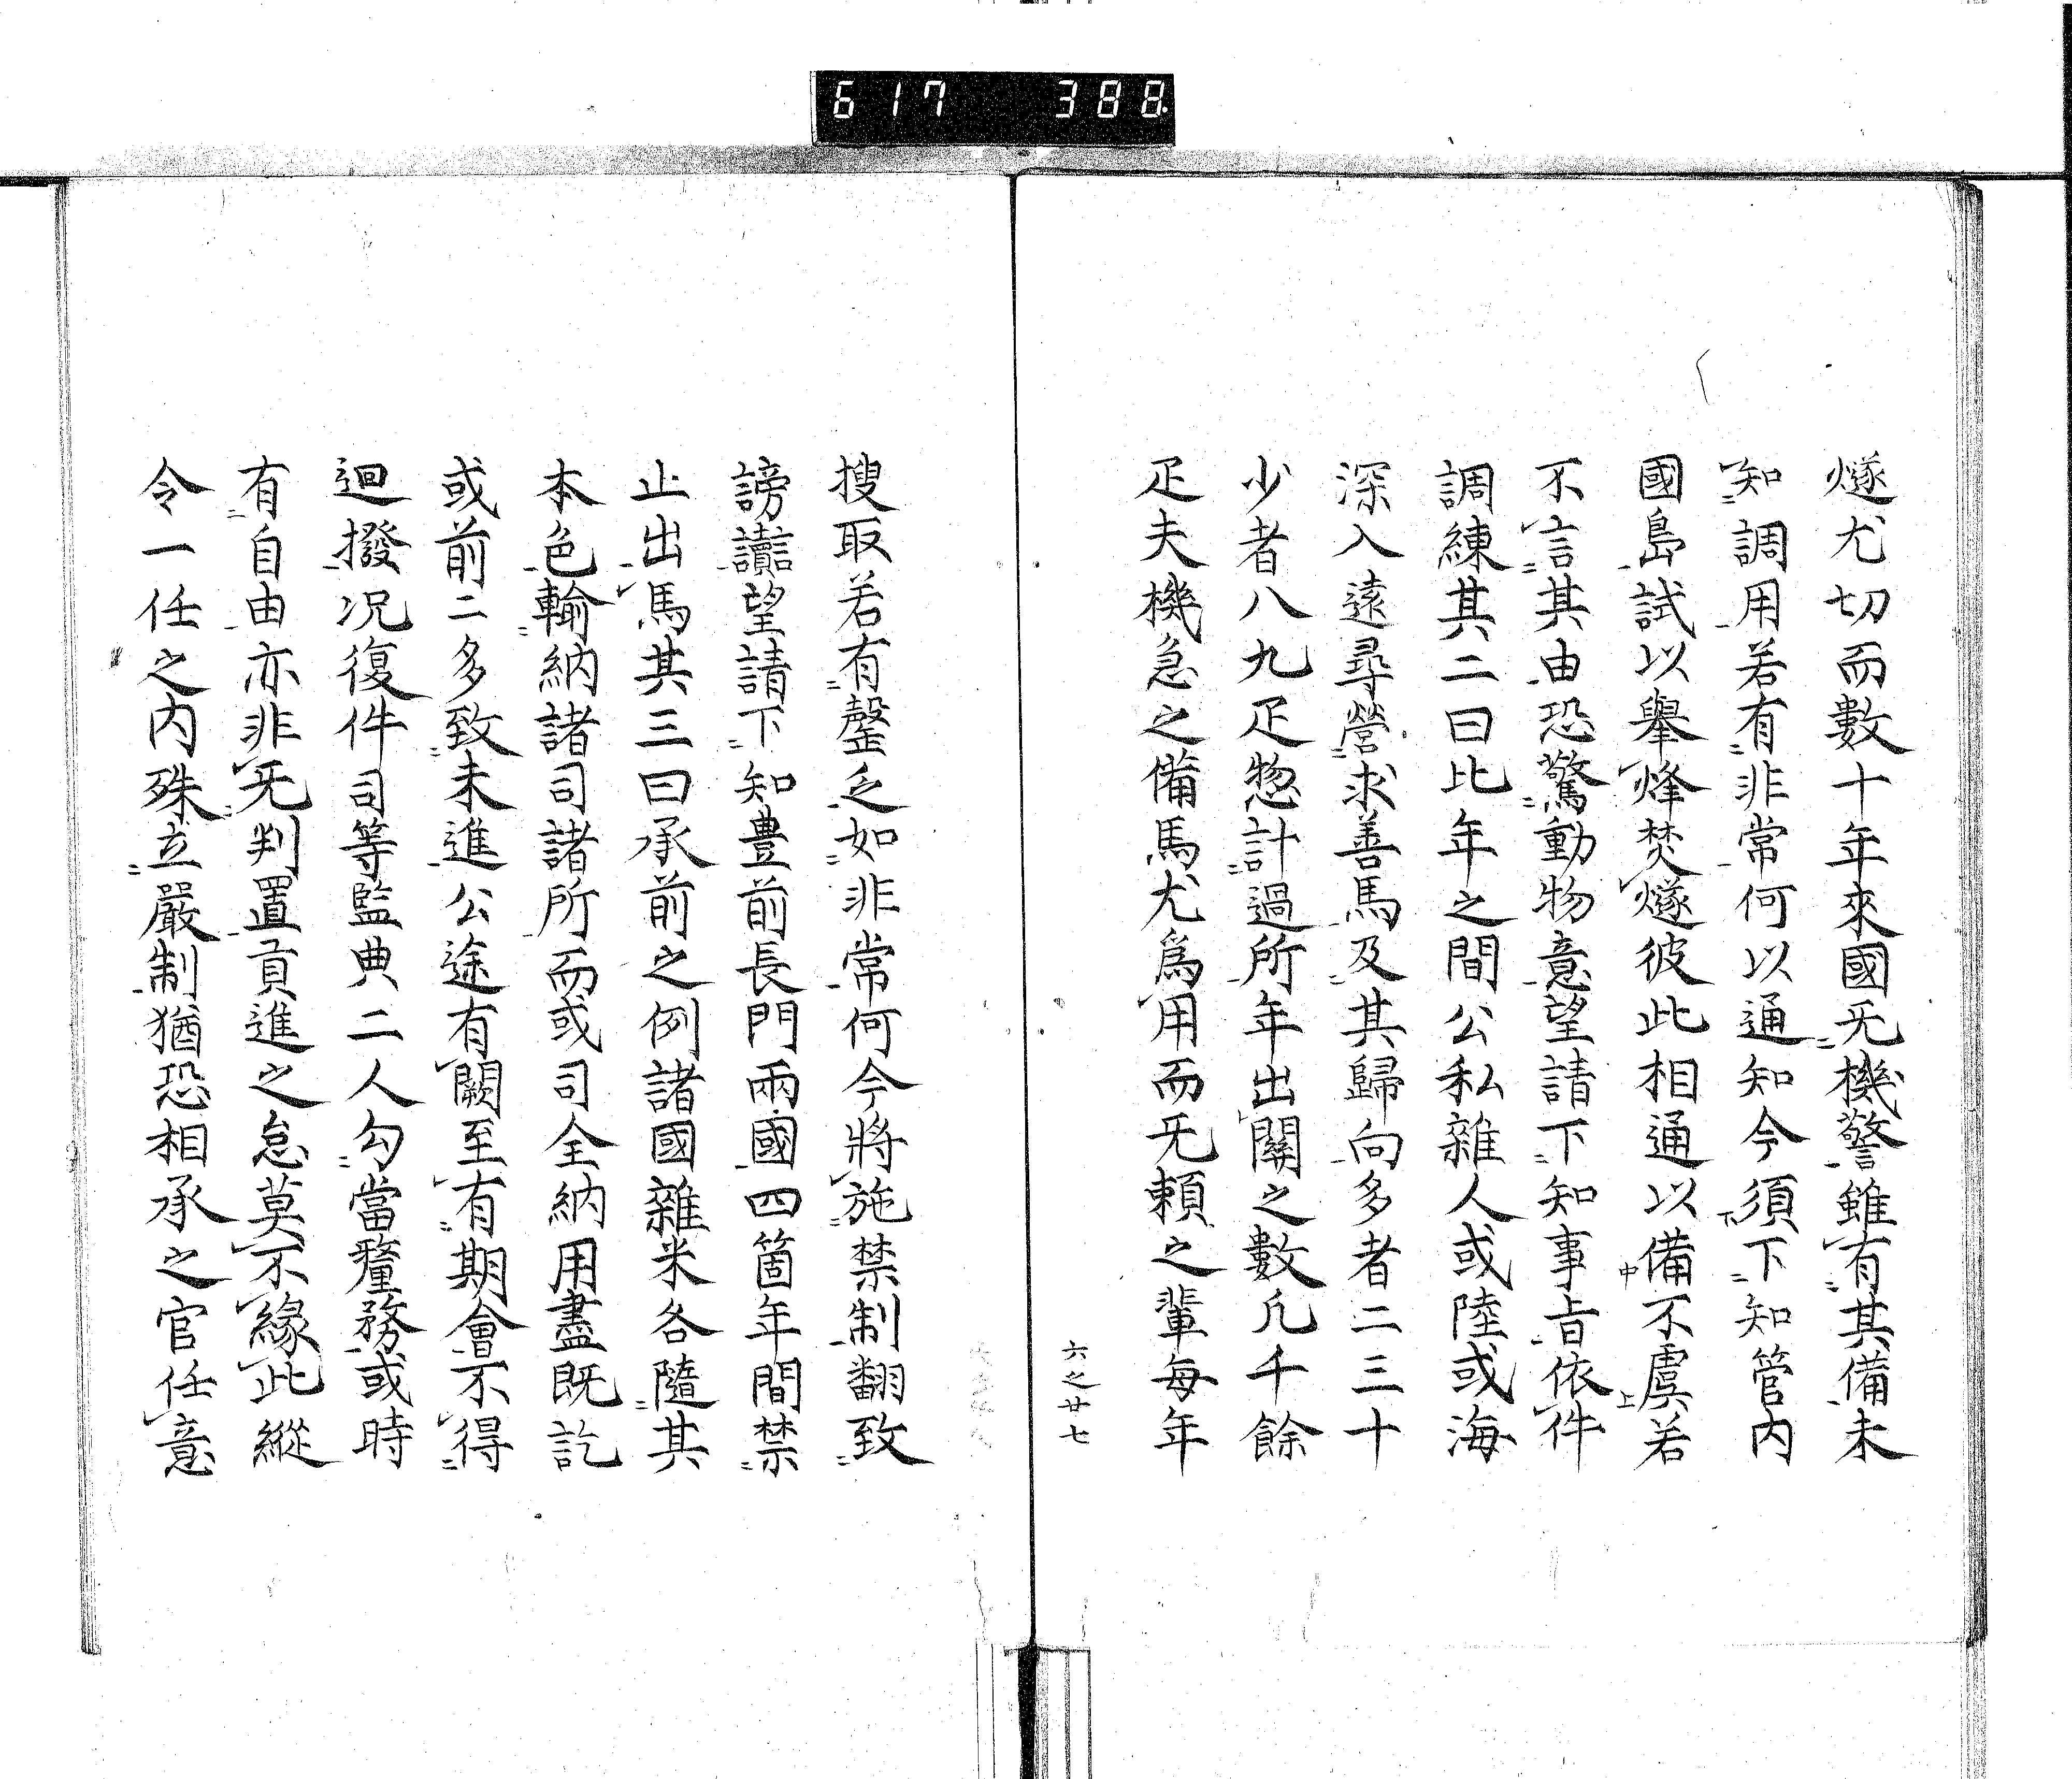 617 388
燧尤切而數十年來國旡機警雖有其備未
知調用若有非常何以通知今須下知管内
國島試以舉烽焚燧彼此相通以備不虞若
不言其由恐驚動物意望請下知事旨依件
調練其二曰比年之間公私雜人或陸或海
深入遠尋營求善馬及其歸向多者二三十
少者八九疋惣計過所年出關之數凡千餘
疋夫機急之備馬尤爲用而旡賴之輩每年
六之廿七
搜取若有罄乏如非常何今將施禁制翻致
謗讟望請下知豊前長門兩國四箇年間禁
止出馬其三曰承前之例諸國雜米各隨其
本色輸納諸司諸所而或司全納用盡既訖
或前二多致未進公途有闕至有期會不得
迴撥况復件司等監典二人勾當釐務或時
有自由亦非旡判置貢進之怠莫不緣此縱
令一任之内殊立嚴制猶恐相承之官任意